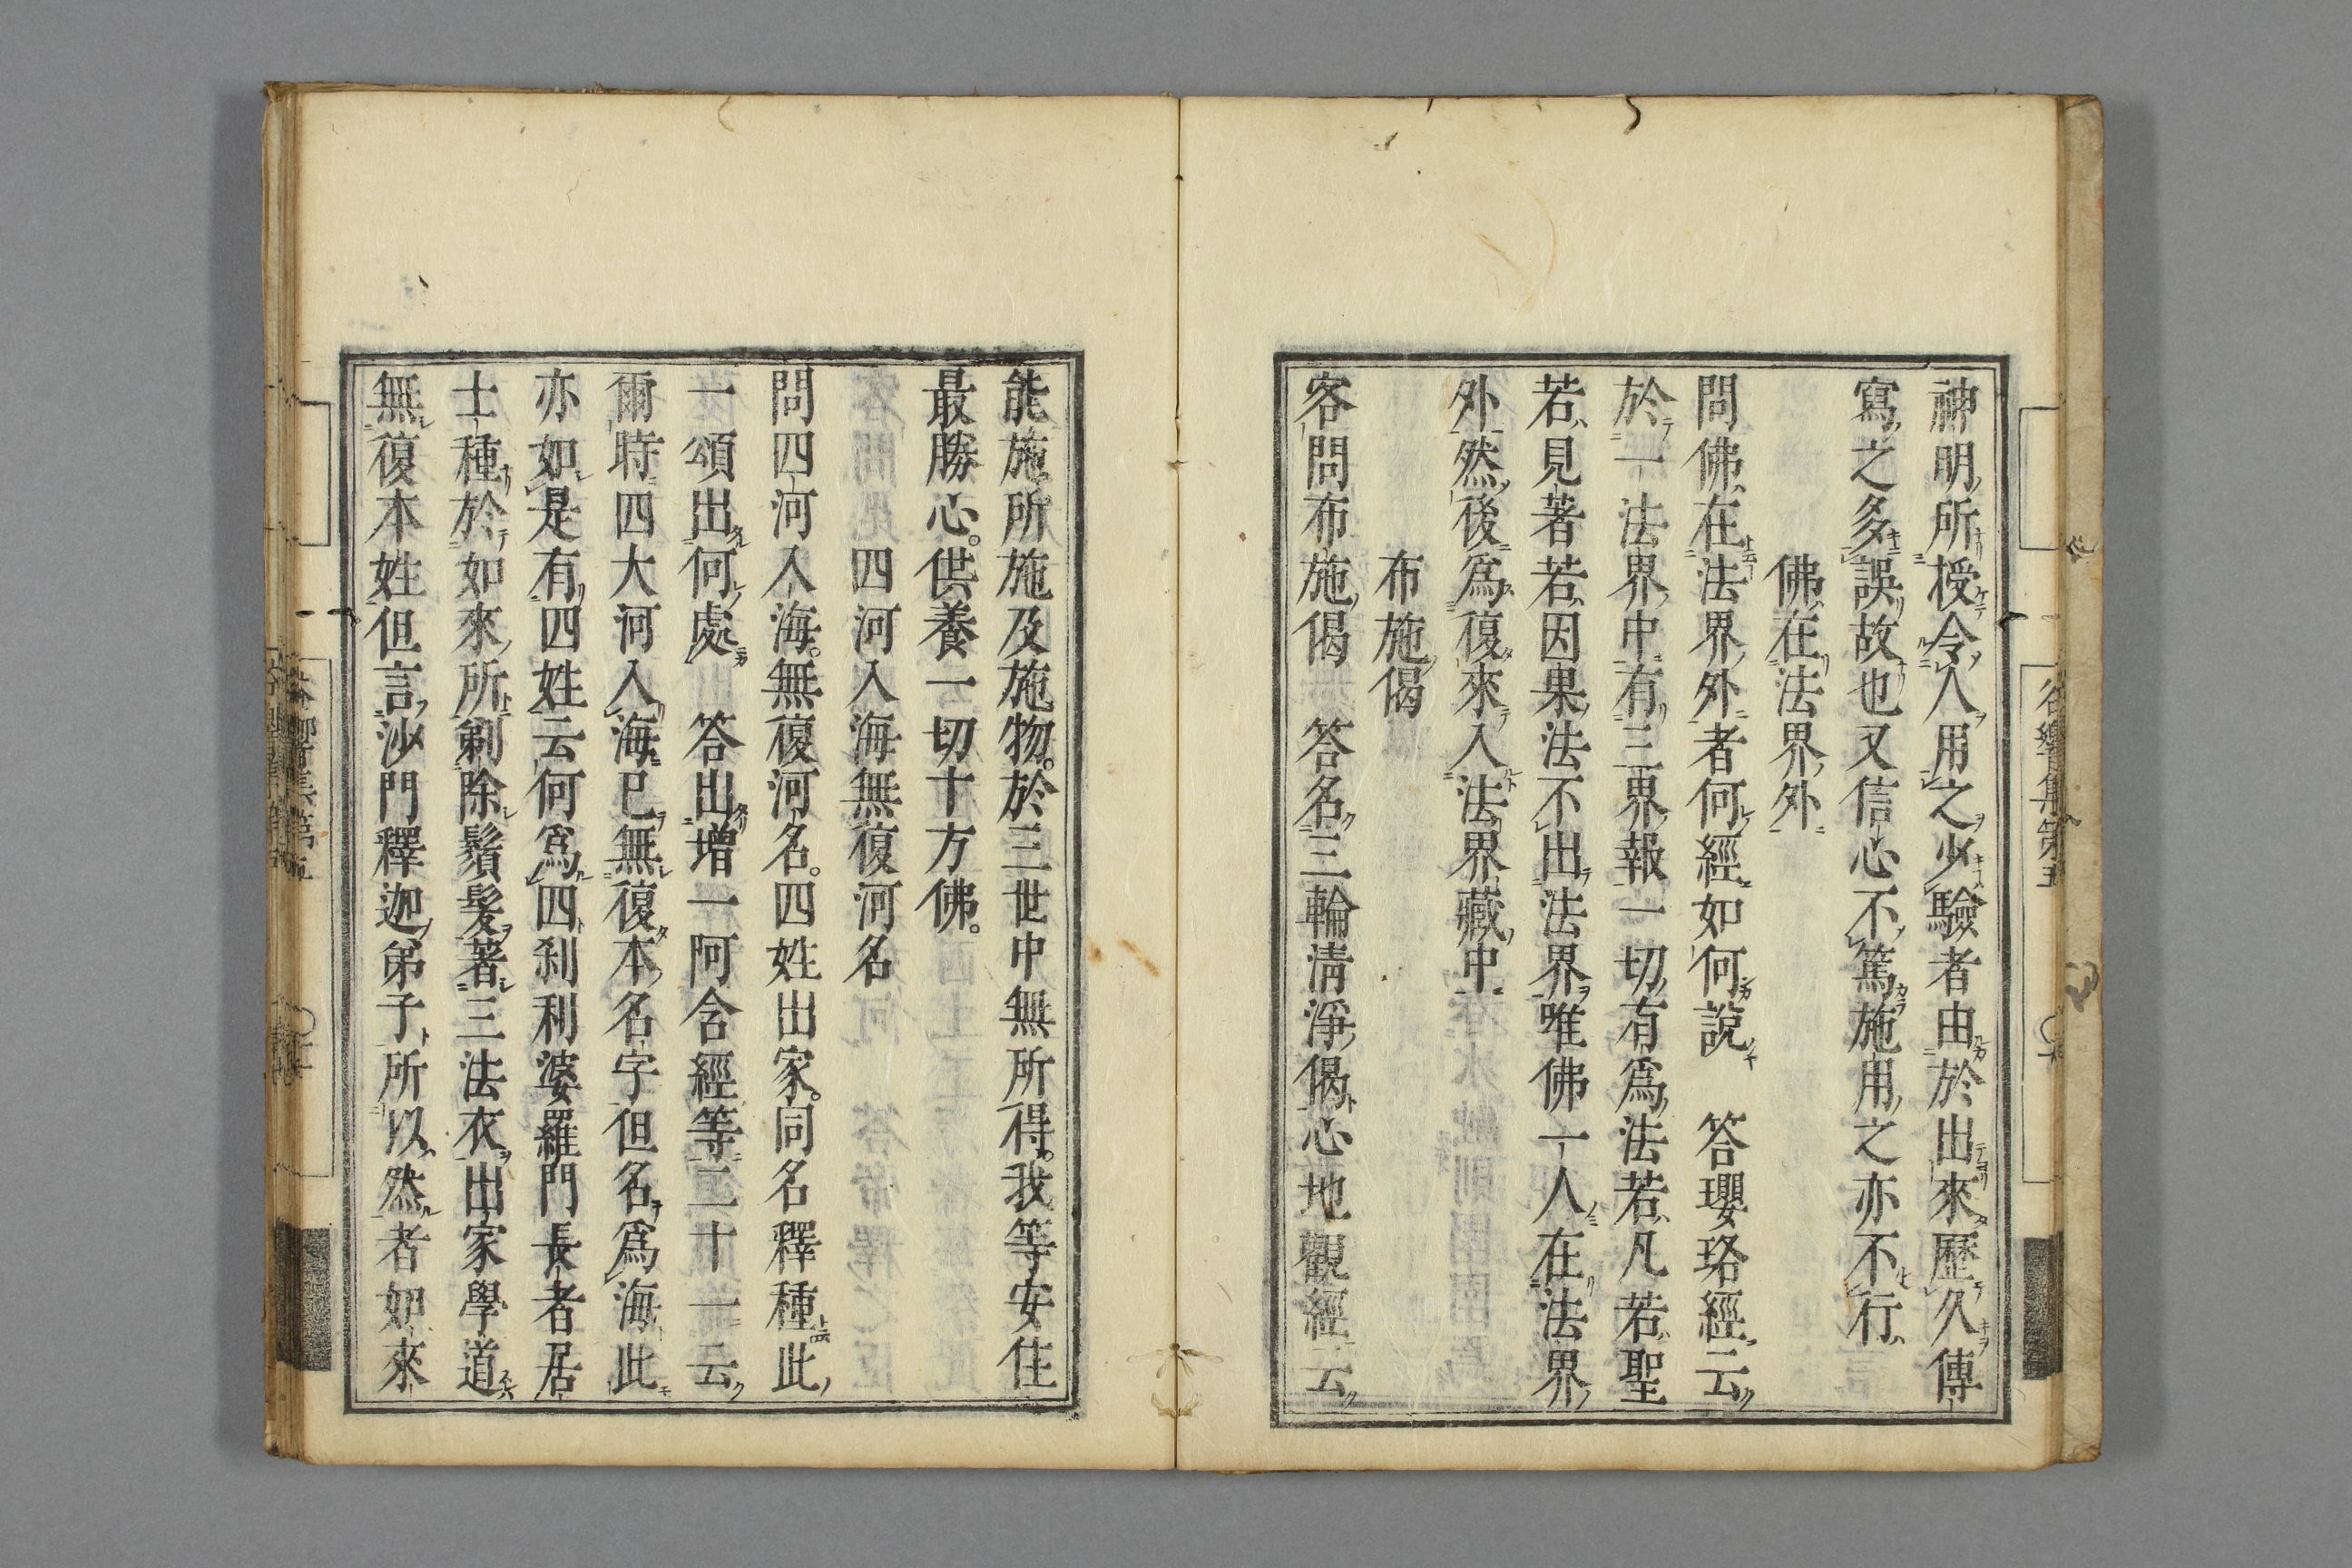 神明所授令人用之少驗者由於出來歷久傳
寫之多誤故也又信心不篤施用之亦不行
佛在法界外
問佛在法界外者何經如何說　答瓔珞經云
於一法界中有三界報一切有爲法若凡若聖
若見著若因果法不出法界唯佛一人在法界
外然後爲復來入法界藏中
布施偈
客問布施偈　答名三輪清淨偈心地觀經云
能施所施及施物。於三世中無所得。我等安住
最勝心。供養一切十方佛。
四河入海無復河名
問四河入海。無復河名。四姓出家。同名釋種此
一頌出何處　答出增一阿含經等二十一云
爾時四大河入海已無復本名字但名爲海此
亦如是有四姓云何爲四刹利婆羅門長者居
士種於如來所剃除鬚髮著三法衣出家學道
無復本姓但言沙門釋迦弟子所以然者如來
谷響集第五